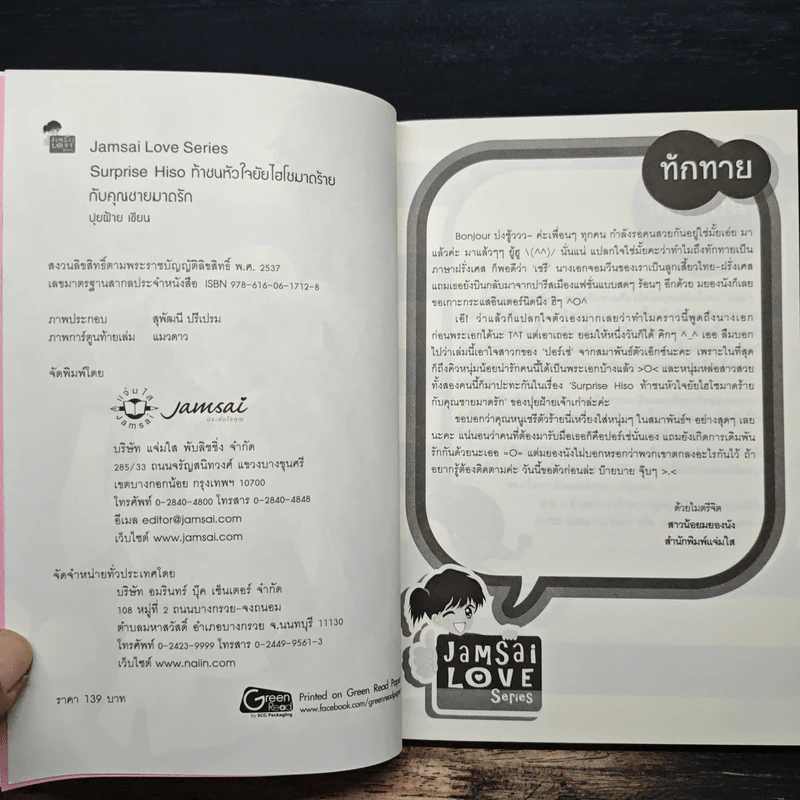 JAMSAI
LOVE
Series
Jamsai Love Series
Surprise Hiso ท้าชนหัวใจยัยไฮโซมาดร้าย
กับคุณชายมาดรัก
ปุยฝ้าย เขียน
สงวนลิขสิทธิ์ตามพระราชบัญญัติลิขสิทธิ์ พ.ศ. 2537
เลขมาตรฐานสากลประจำหนังสือ ISBN 978-616-06-1712-8
ภาพประกอบ สุพัฒนี ปรีเปรม
ภาพการ์ตูนท้ายเล่ม แมวดาว
จัดพิมพ์โดย
แจ่มใส
Jamsai
Jamsai
ประทับใจคุณ
บริษัท แจ่มใส พับลิชชิ่ง จำกัด
285/33 ถนนจรัญสนิทวงศ์ แขวงบางขุนศรี
เขตบางกอกน้อย กรุงเทพฯ 10700
โทรศัพท์ 0-2840-4800 โทรสาร 0-2840-4848
อีเมล editor@jamsai.com
เว็บไซต์ www.jamsai.com
จัดจำหน่ายทั่วประเทศโดย
บริษัท อมรินทร์ บุ๊ค เซ็นเตอร์ จำกัด
108 หมู่ที่ 2 ถนนบางกรวย-จงถนอม
ตำบลมหาสวัสดิ์ อำเภอบางกรวย จ.นนทบุรี 11130
โทรศัพท์ 0-2423-9999 โทรสาร 0-2449-9561-3
เว็บไซต์ www.naiin.com
ราคา 139 บาท
Green
Read
by SCG Packaging
Printed on Green Read Paper
www.facebook.com/greenreadpaper
ทักทาย
Bonjour บ่งชู้ววว~ ค่ะเพื่อนๆ ทุกคน กำลังรอคนสวยกันอยู่ใช่มั้ยเอ่ย มา
แล้วค่ะ มาแล้วๆๆ ยู้ฮู \(^^)/ นั่นแน่ แปลกใจใช่มั้ยคะว่าทำไมถึงทักทายเป็น
ภาษาฝรั่งเศส ก็พอดีว่า 'เชรี' นางเอกจอมวีนของเราเป็นลูกเสี้ยวไทย-ฝรั่งเศส
แถมเธอยังบินกลับมาจากปารีสเมืองแฟชั่นแบบสดๆ ร้อนๆ อีกด้วย มยองนังก็เลย
ขอเกาะกระแสอินเตอร์นิดนึง ฮิๆ ^O^
เอ๊! ว่าแล้วก็แปลกใจตัวเองมากเลยว่าทำไมคราวนี้พูดถึงนางเอก
ก่อนพระเอกได้นะ T^T แต่เอาเถอะ ยอมให้หนึ่งวันก็ได้ คิกๆ ^_^ เออ ลืมบอก
ไปว่าเล่มนี้เอาใจสาวกของ 'ปอร์เช่' จากสมาพันธ์ตัวเอ็กซ์นะคะ เพราะในที่สุด
ก็ถึงคิวหนุ่มน้อยน่ารักคนนี้ได้เป็นพระเอกบ้างแล้ว >O< และหนุ่มหล่อสาวสวย
ทั้งสองคนนี้ก็มาปะทะกันในเรื่อง 'Surprise Hiso ท้าชนหัวใจยัยไฮโซมาดร้าย
กับคุณชายมาดรัก' ของปุยฝ้ายเจ้าเก่าล่ะค่ะ
ขอบอกว่าคุณหนูเชรีตัวร้ายนี่เหวี่ยงใส่หนุ่มๆ ในสมาพันธ์ฯ อย่างสุดๆ เลย
นะคะ แน่นอนว่าคนที่ต้องมารับมือเธอก็คือปอร์เช่นั่นเอง แถมยังเกิดการเดิมพัน
รักกันด้วยนะเออ =O= แต่มยองนังไม่บอกหรอกว่าพวกเขาตกลงอะไรกันไว้ ถ้า
อยากรู้ต้องติดตามค่ะ วันนี้ขอตัวก่อนล่ะ บ๊ายบาย จุ๊บๆ >.<
ด้วยไมตรีจิต
สาวน้อยมยองนัง
สำนักพิมพ์แจ่มใส
JAMSAI
LOVE
Series